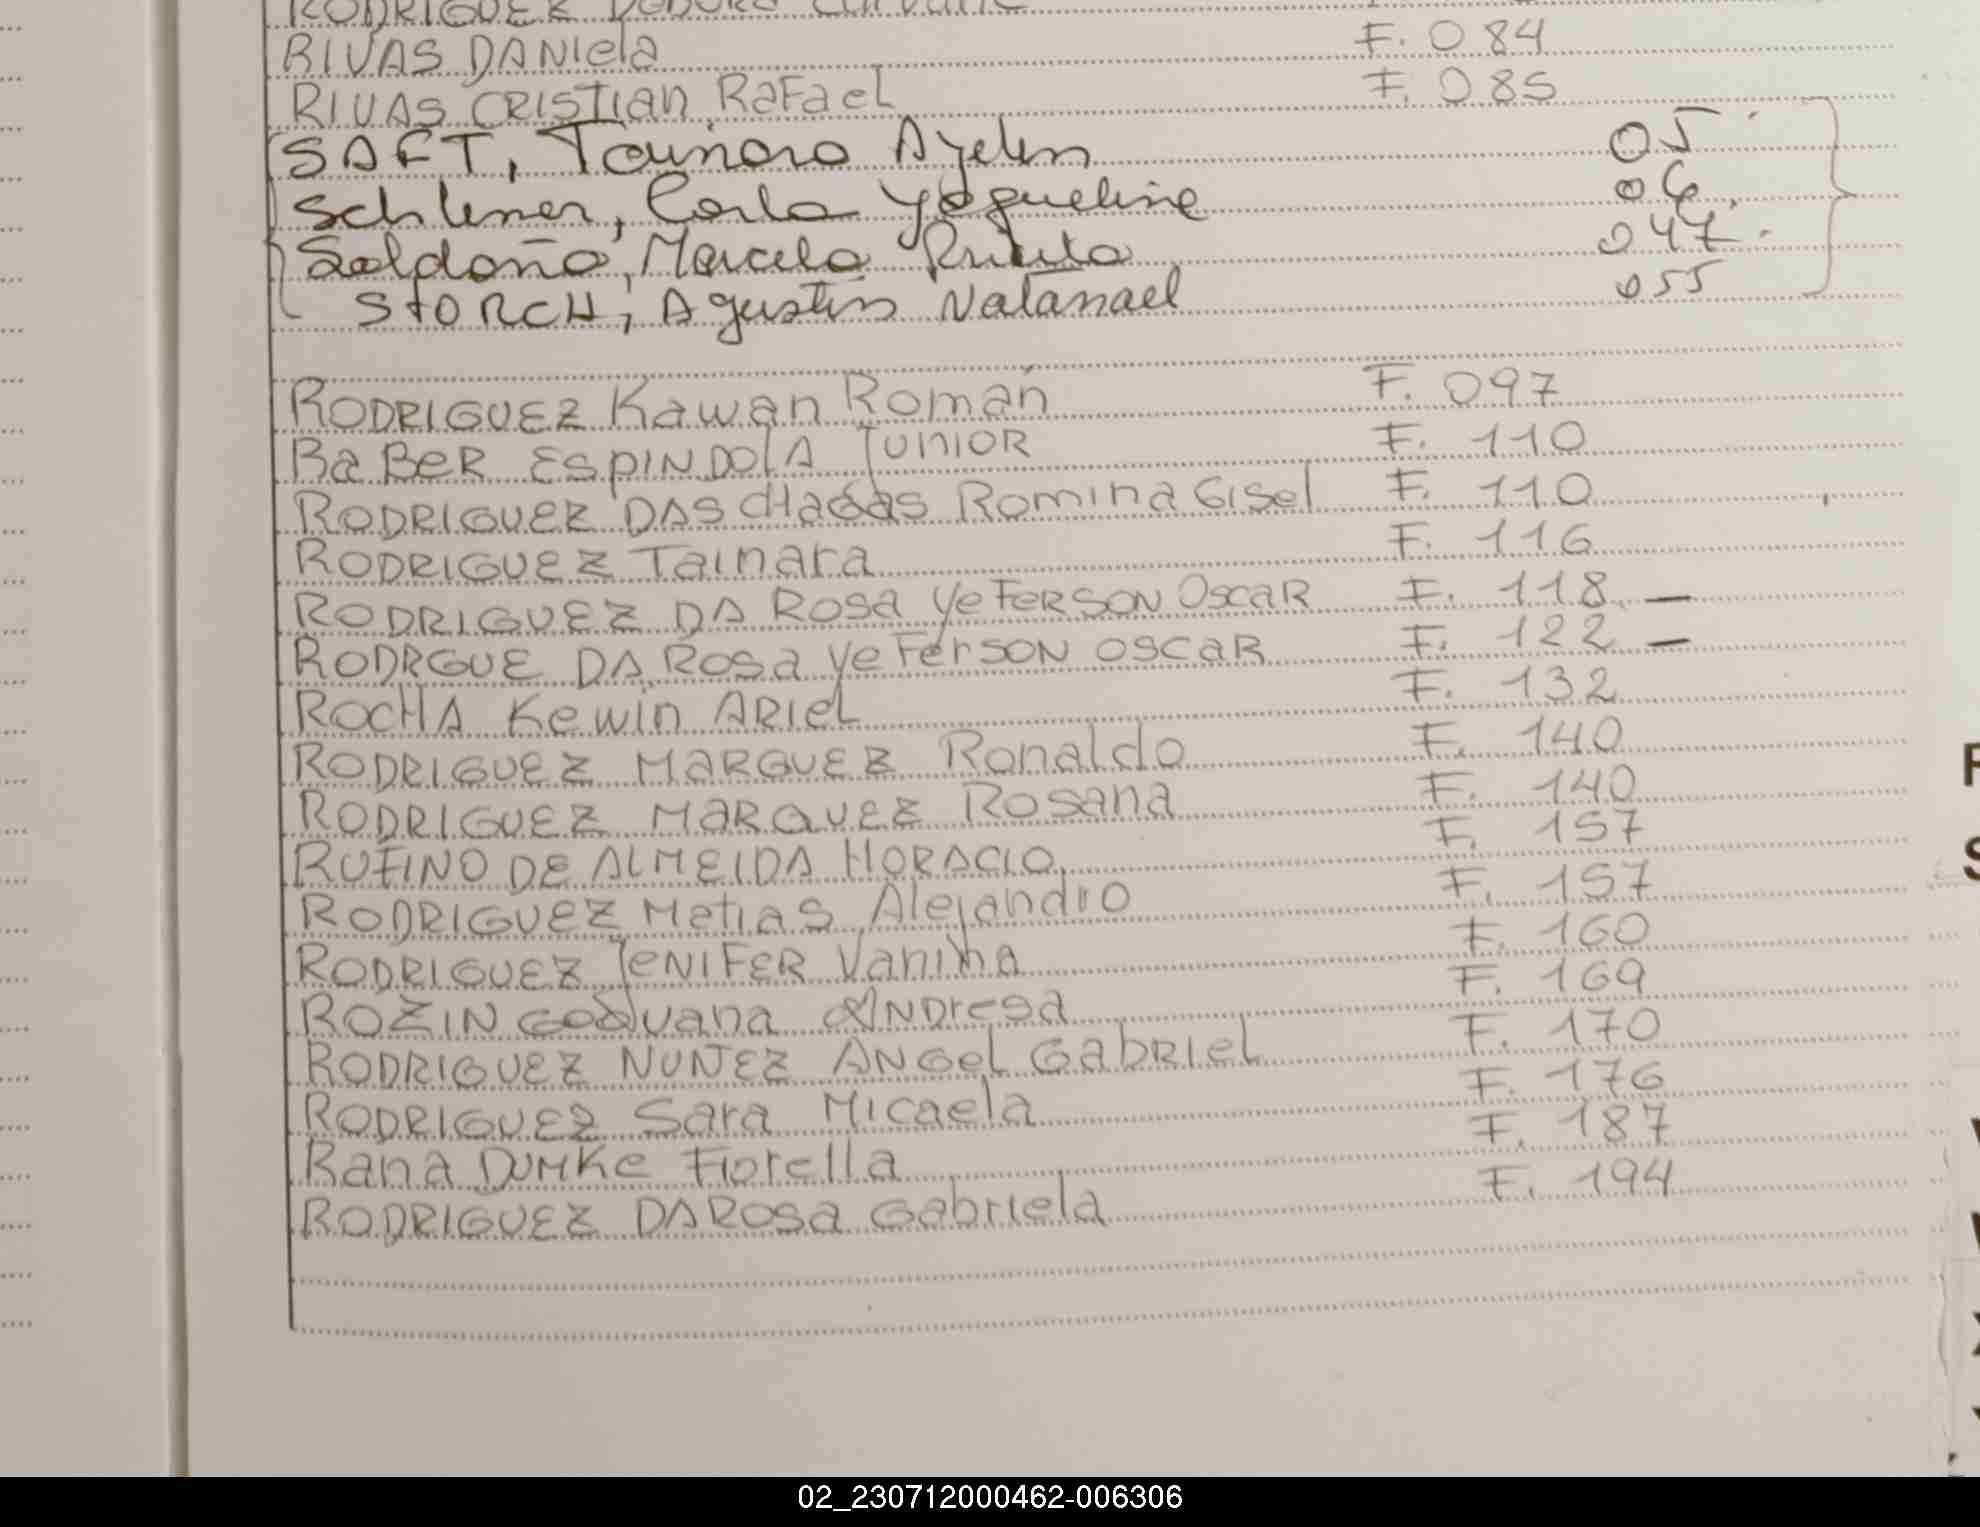 RODRIGUEZ Debora
RIVAS DANIela F. 084
RIVAS CRISTIAN RaFael F. 085
SAFT, Tainara Ayelen 05
Schlemer, Carla Yaqueline 06
Saldaña, Marcela 047
STORCH, Agustin Natanael 055
RODRIGUEZ Kawan Román F. 097
BaBeR ESPINDOlA JUNIOR F. 110
RODRIGUEZ DAS CHAGas Romina Gisel F. 110
RODRIGUEZ Tainara F. 116
RODRIGUEZ DA ROSa YeFERSON OscaR F. 118 —
RODRGUE DA ROSa YeFerSON OSCaR F. 122 —
ROCHA Kewin ARIeL F. 132
RODRIGUEZ MARQUEZ Ronaldo F. 140
RODRIGUEZ MARQUEZ Rosana F. 140
RUFINO DE ALMEIDA HORACIO F. 157
RODRIGUEZ Metias Alejandro F. 157
RODRIGUEZ JENIFER Vanina F. 160
ROZIN ANDresa F. 169
RODRIGUEZ NUNEZ ANGel GabRIel F. 170
RODRIGUEZ Sara Micaela F. 176
Rana DUMKe Fiorella F. 187
RODRIGUEZ DA ROSa Gabriela F. 194
02_230712000462-006306